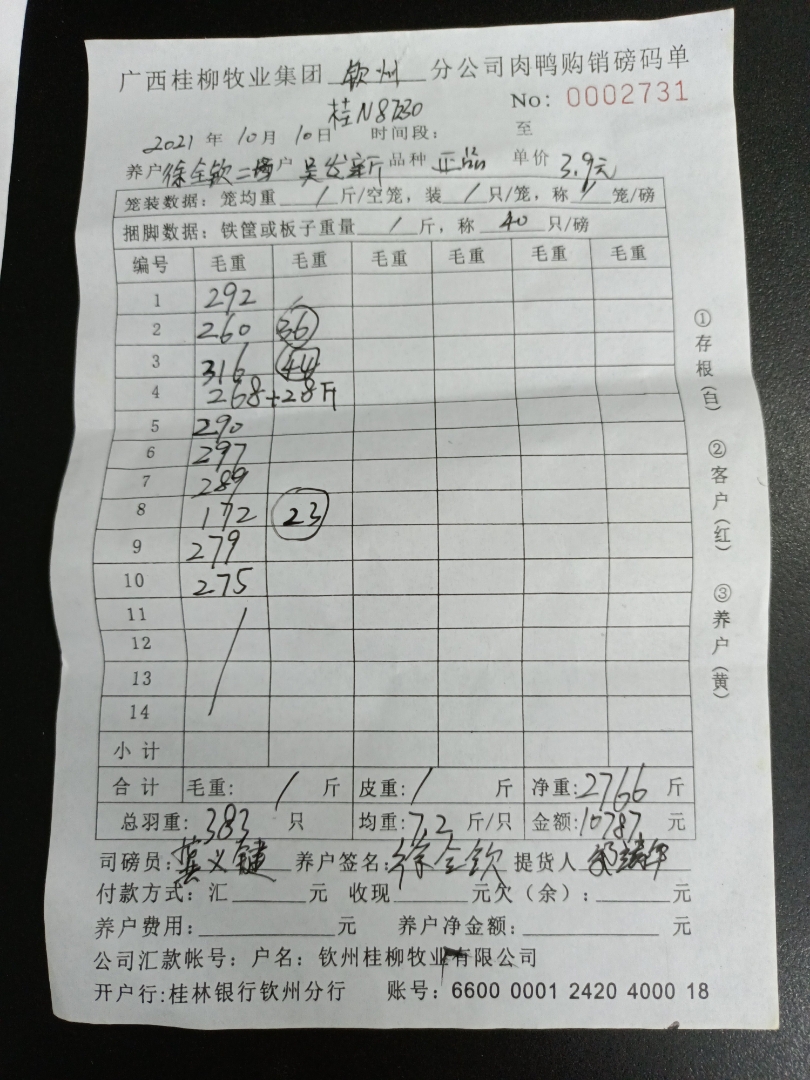 广西桂柳牧业集团 钦州 分公司肉鸭购销磅码单
桂N8230 No: 0002731
2021 年 10 月 10 日 时间段: 至
养户 徐全钦二场 户 吴发新 品种 正品 单价 3.9元
笼装数据: 笼均重 / 斤/空笼, 装 / 只/笼, 称 / 笼/磅
捆脚数据: 铁筐或板子重量 / 斤, 称 40 只/磅
编号 毛重 毛重 毛重 毛重 毛重 毛重
1 292
2 260 36
3 316 44
4 268+28斤
5 290
6 297
7 289
8 172 23
9 279
10 275
11
12
13
14
小计
合计 毛重: / 斤 皮重: / 斤 净重: 2766 斤
总羽重: 383 只 均重: 7.2 斤/只 金额: 10787 元
司磅员: 龚义键 养户签名: 徐全钦 提货人
付款方式: 汇 元 收现 元欠(余): 元
养户费用: 元 养户净金额: 元
公司汇款帐号: 户名: 钦州桂柳牧业有限公司
开户行:桂林银行钦州分行 账号: 6600 0001 2420 4000 18
①存根(白) ②客户(红) ③养户(黄)